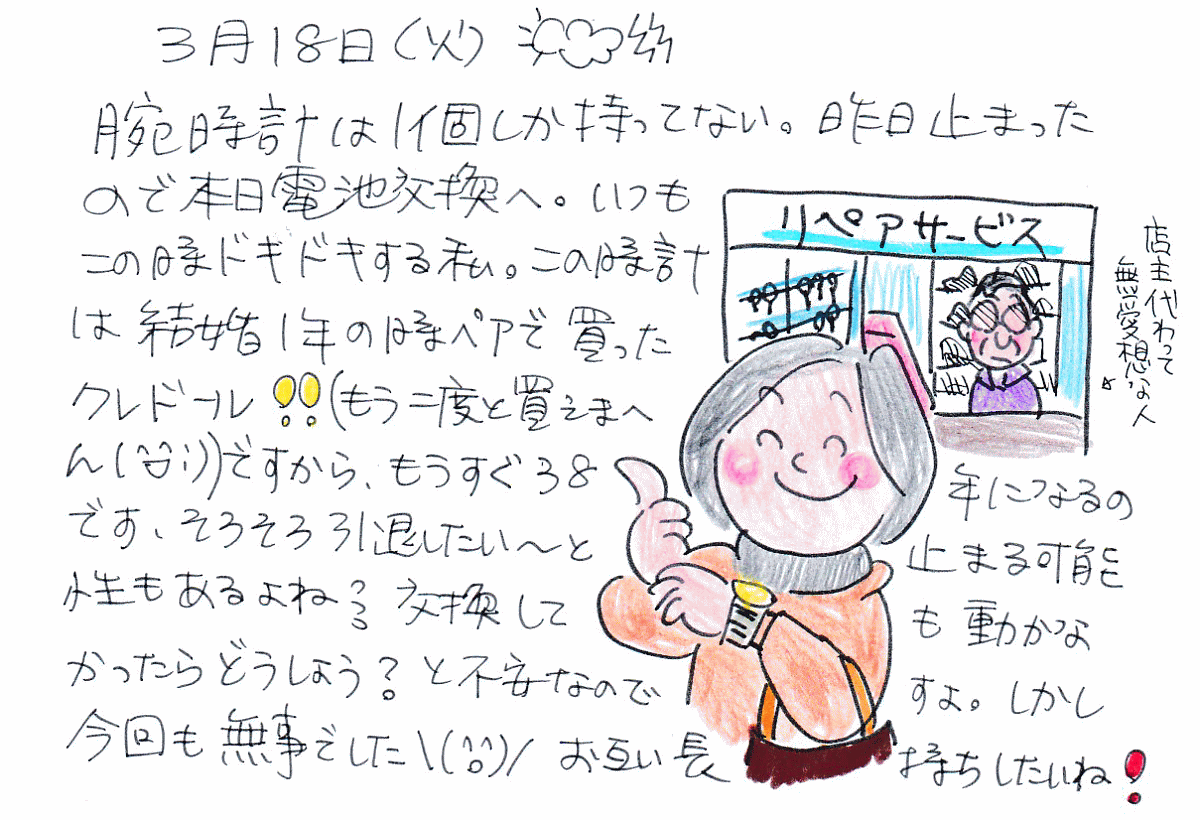 3月18日(火)
腕時計は1個しか持ってない。昨日止まった
ので本日電池交換へ。いつも
この時ドキドキする私。この時計
は結婚1年の時ペアで買った
クレドール!!(もう二度と買えまへ
ん(^^;))ですから、もうすぐ38年になるの
です、そろそろ引退したい〜と止まる可能
性もあるよね??交換しても動かな
かったらどうしよう?と不安なのですよ。しかし
今回も無事でした\(^o^)/お互い長持ちしたいね!
リペアサービス
店主代わって
無愛想な人